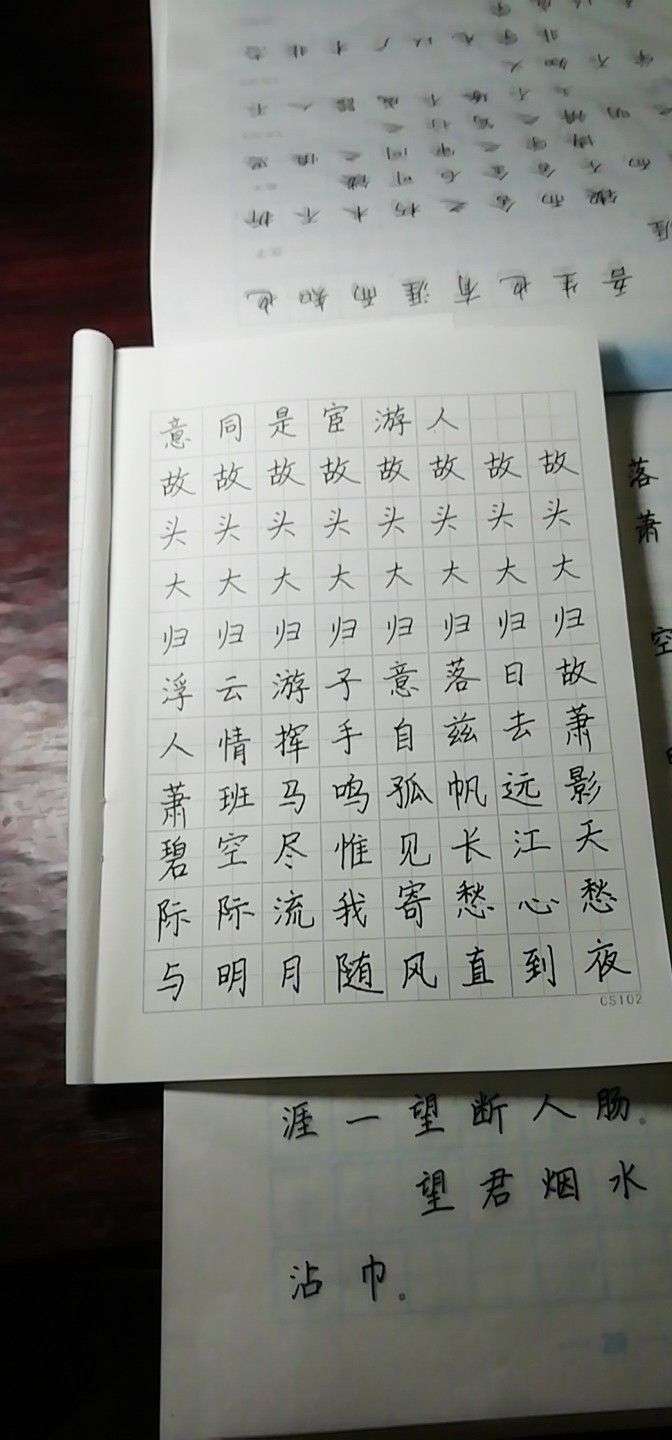 吾生也有涯而知也
锲而舍之朽木不折
而不舍金石可镂
意同是宦游人
故故故故故故故故
头头头头头头头头
大大大大大大大大
归归归归归归归归
浮云游子意落日故
人情挥手自兹去萧
萧班马鸣孤帆远影
碧空尽惟见长江天
际际流我寄愁心愁
与明月随风直到夜
CS102
落
萧
空
涯一望断人肠。
望君烟水
沾巾。